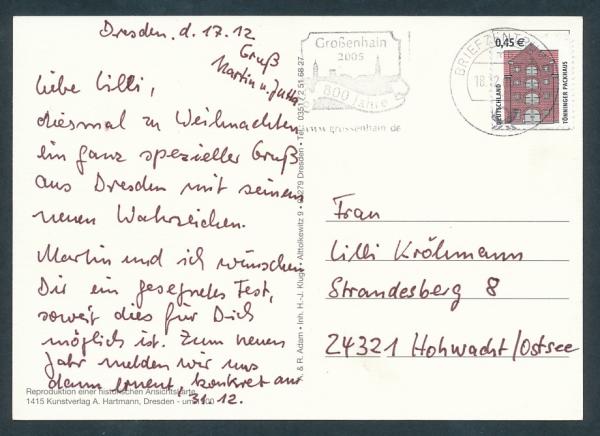 Dresden, d. 17.12
Gruß
Martin u. Jutta
Liebe Lilli,
diesmal zu Weihnachten
ein ganz spezieller Gruß
aus Dresden mit seinem
neuen Wahrzeichen.
Martin und ich wünschen
Dir ein gesegnetes Fest,
soweit dies für Dich
möglich ist. Zum neuen
Jahr melden wir uns
dann erneut, konkret am
31.12.
Reproduktion einer historischen Ansichtskarte
1415 Kunstverlag A. Hartmann, Dresden - um 1900
A. & R. Adam • Inh. H.-J. Kluge • Alttolkewitz 9 • 01279 Dresden • Tel.: 0351/2 51 68 27
Großenhain
2005
800 Jahre
www.grossenhain.de
BRIEFZENTR
18.12
0,45 €
DEUTSCHLAND
TÖNNINGER PACKHAUS
Frau
Lilli Kröhmann
Strandesberg 8
24321 Hohwacht/Ostsee